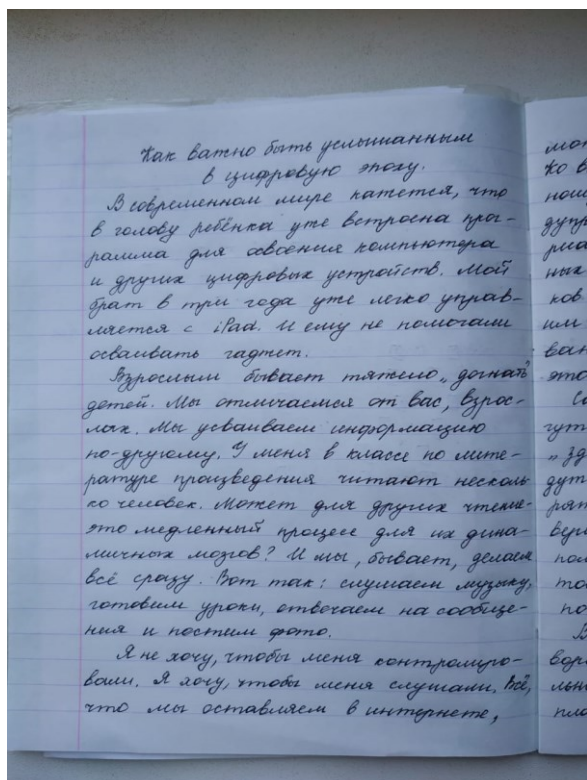 Как важно быть услышанным
в цифровую эпоху.
В современном мире кажется, что
в голову ребёнка уже встроена прог-
рамма для освоения компьютера
и других цифровых устройств. Мой
брат в три года уже легко управ-
ляется с iPad. И ему не помогали
осваивать гаджет.
Взрослым бывает тяжело „догнать"
детей. Мы отличаемся от вас, взрос-
лых. Мы усваиваем информацию
по-другому. У меня в классе по лите-
ратуре произведения читают несколь
ко человек. Может для других чтение-
это медленный процесс для их дина-
мичных мозгов? И мы, бывает, делаем
всё сразу. Вот так: слушаем музыку,
готовим уроки, отвечаем на сообще-
ния и постим фото.
Я не хочу, чтобы меня контролиро-
вали. Я хочу, чтобы меня слушали. Всё,
что мы оставляем в интернете,